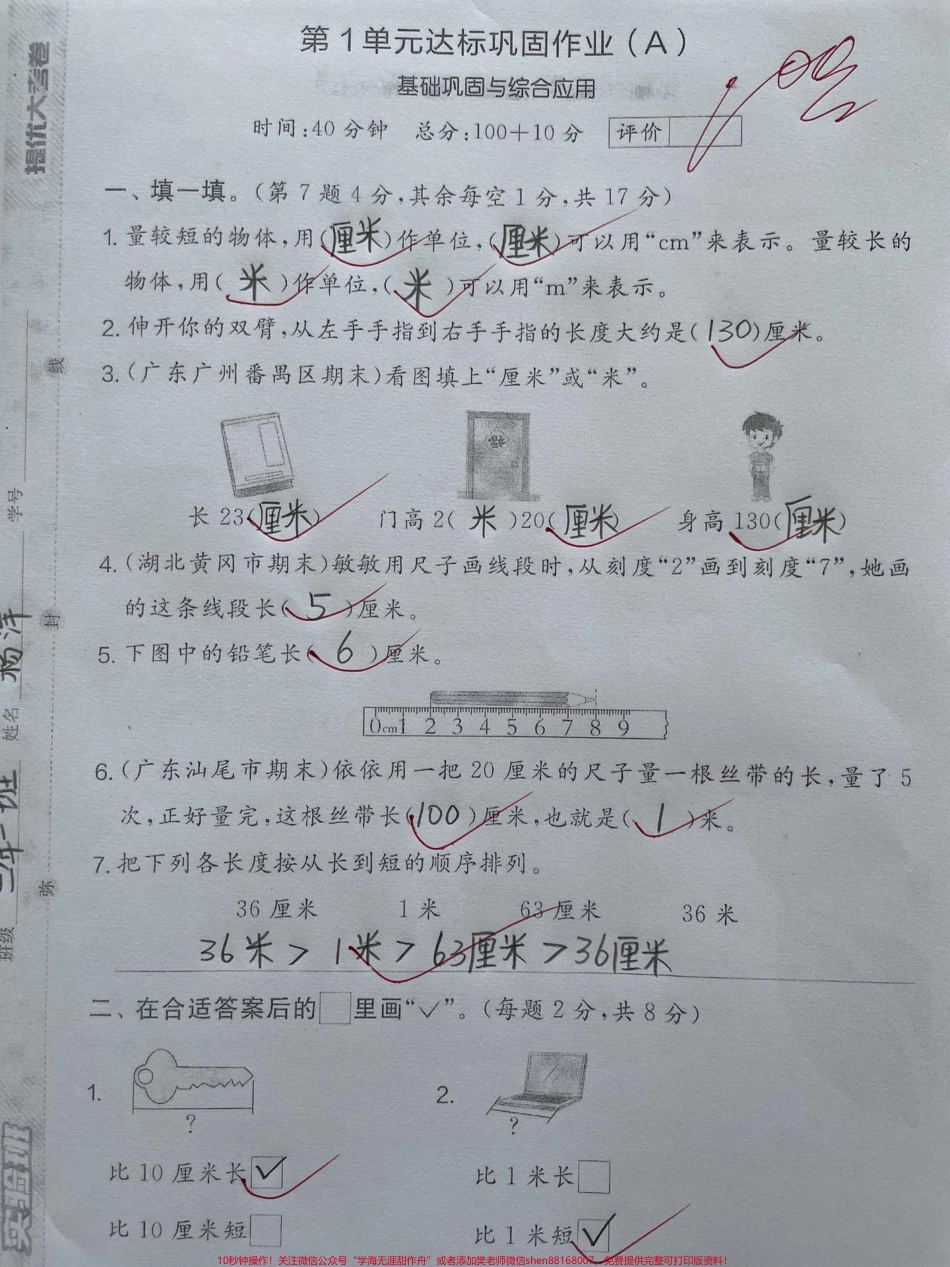 提优大考卷
第1单元达标巩固作业(A)
基础巩固与综合应用
时间:40分钟 总分:100+10分 评价
一、填一填。(第7题4分,其余每空1分,共17分)
1.量较短的物体,用(厘米)作单位,(厘米)可以用“cm”来表示。量较长的
物体,用(米)作单位,(米)可以用“m”来表示。
2.伸开你的双臂,从左手手指到右手手指的长度大约是(130)厘米。
3.(广东广州番禺区期末)看图填上“厘米”或“米”。
长23(厘米) 门高2(米)20(厘米) 身高130(厘米)
4.(湖北黄冈市期末)敏敏用尺子画线段时,从刻度“2”画到刻度“7”,她画
的这条线段长(5)厘米。
5.下图中的铅笔长(6)厘米。
0cm1 2 3 4 5 6 7 8 9
6.(广东汕尾市期末)依依用一把20厘米的尺子量一根丝带的长,量了5
次,正好量完,这根丝带长(100)厘米,也就是(1)米。
7.把下列各长度按从长到短的顺序排列。
36厘米 1米 63厘米 36米
36米>1米>63厘米>36厘米
二、在合适答案后的□里画“✓”。(每题2分,共8分)
1. 2.
? ?
比10厘米长✓ 比1米长□
比10厘米短□ 比1米短✓
线
学号
封
姓名 杨洋
弥
班级
实验班
10秒钟操作!关注微信公众号“学海无涯甜作舟”或者添加樊老师微信shen88168007,免费提供完整可打印版资料!